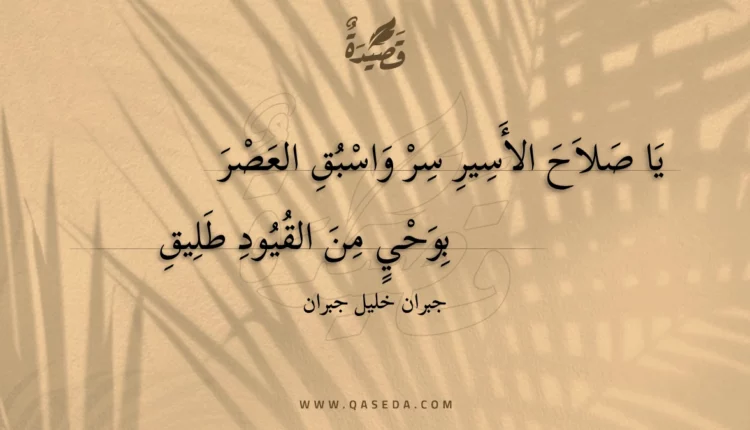 قَصِيْدَةٌ
يَا صَلاَحَ الأَسِيرِ سِرْ وَاسْبُقِ العَصْرَ
بِوَحْيٍ مِنَ القُيُودِ طَلِيقِ
جبران خليل جبران
WWW.QASEDA.COM